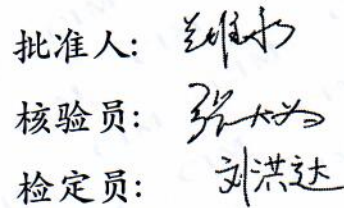 批准人:
核验员: 张大为
检定员: 刘洪达